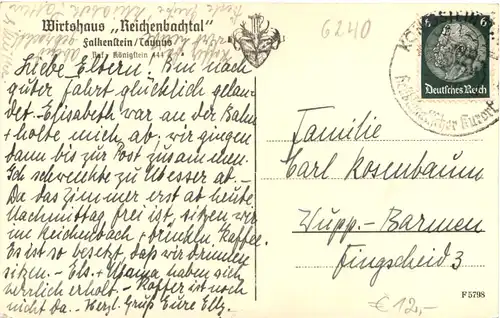 Wirtshaus „Reichenbachtal"
Falkenstein/Taunus
Ruf: Königstein 444
6240
Liebe Eltern! Bin nach
guter Fahrt glücklich gelan-
det. Elisabeth war an der Bahn
+ holte mich ab; wir gingen
dann bis zur Post zusammen.
Ich schwenkte zu ab.-
Da das Zimmer erst ab heute
Nachmittag frei ist, sitzen wir
im Reichenbach + trinken Kaffee.
Es ist so besetzt, daß wir drinnen
sitzen. - Els. + haben sich
herrlich erholt. - Koffer ist noch
nicht da. - Herzl. Gruß Eure Elly.
6 6
Deutsches Reich
Familie
Carl Rosenbaum
Wupp.-Barmen
Fingscheid 3
F 5798
€ 12,-